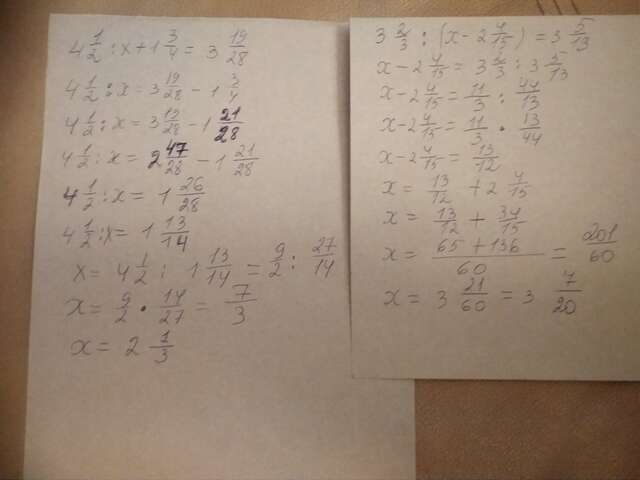 4 1/2 : x + 1 3/4 = 3 19/28
4 1/2 : x = 3 19/28 - 1 3/4
4 1/2 : x = 3 19/28 - 1 21/28
4 1/2 : x = 2 47/28 - 1 21/28
4 1/2 : x = 1 26/28
4 1/2 : x = 1 13/14
x = 4 1/2 : 1 13/14 = 9/2 : 27/14
x = 9/2 • 14/27 = 7/3
x = 2 1/3
3 2/3 : (x - 2 4/15) = 3 5/13
x - 2 4/15 = 3 2/3 : 3 5/13
x - 2 4/15 = 11/3 : 44/13
x - 2 4/15 = 11/3 • 13/44
x - 2 4/15 = 13/12
x = 13/12 + 2 4/15
x = 13/12 + 34/15
x = (65 + 136)/60 = 201/60
x = 3 21/60 = 3 7/20